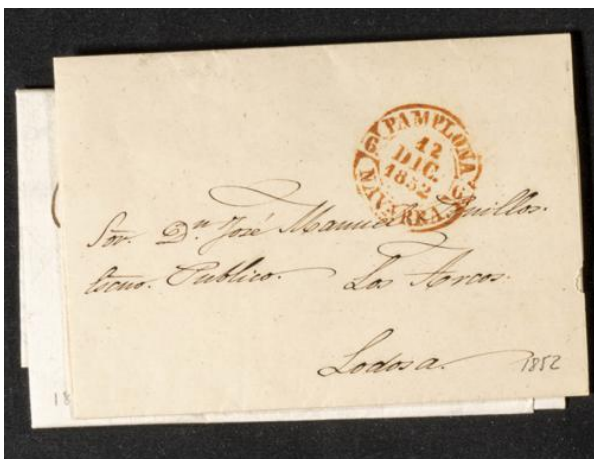 6 PAMPLONA 6
12
DIC.
1852
NAVARRA.
Sor. Dn. José Manuel
Escno. Publico. Los Arcos.
Lodosa.
1852
18